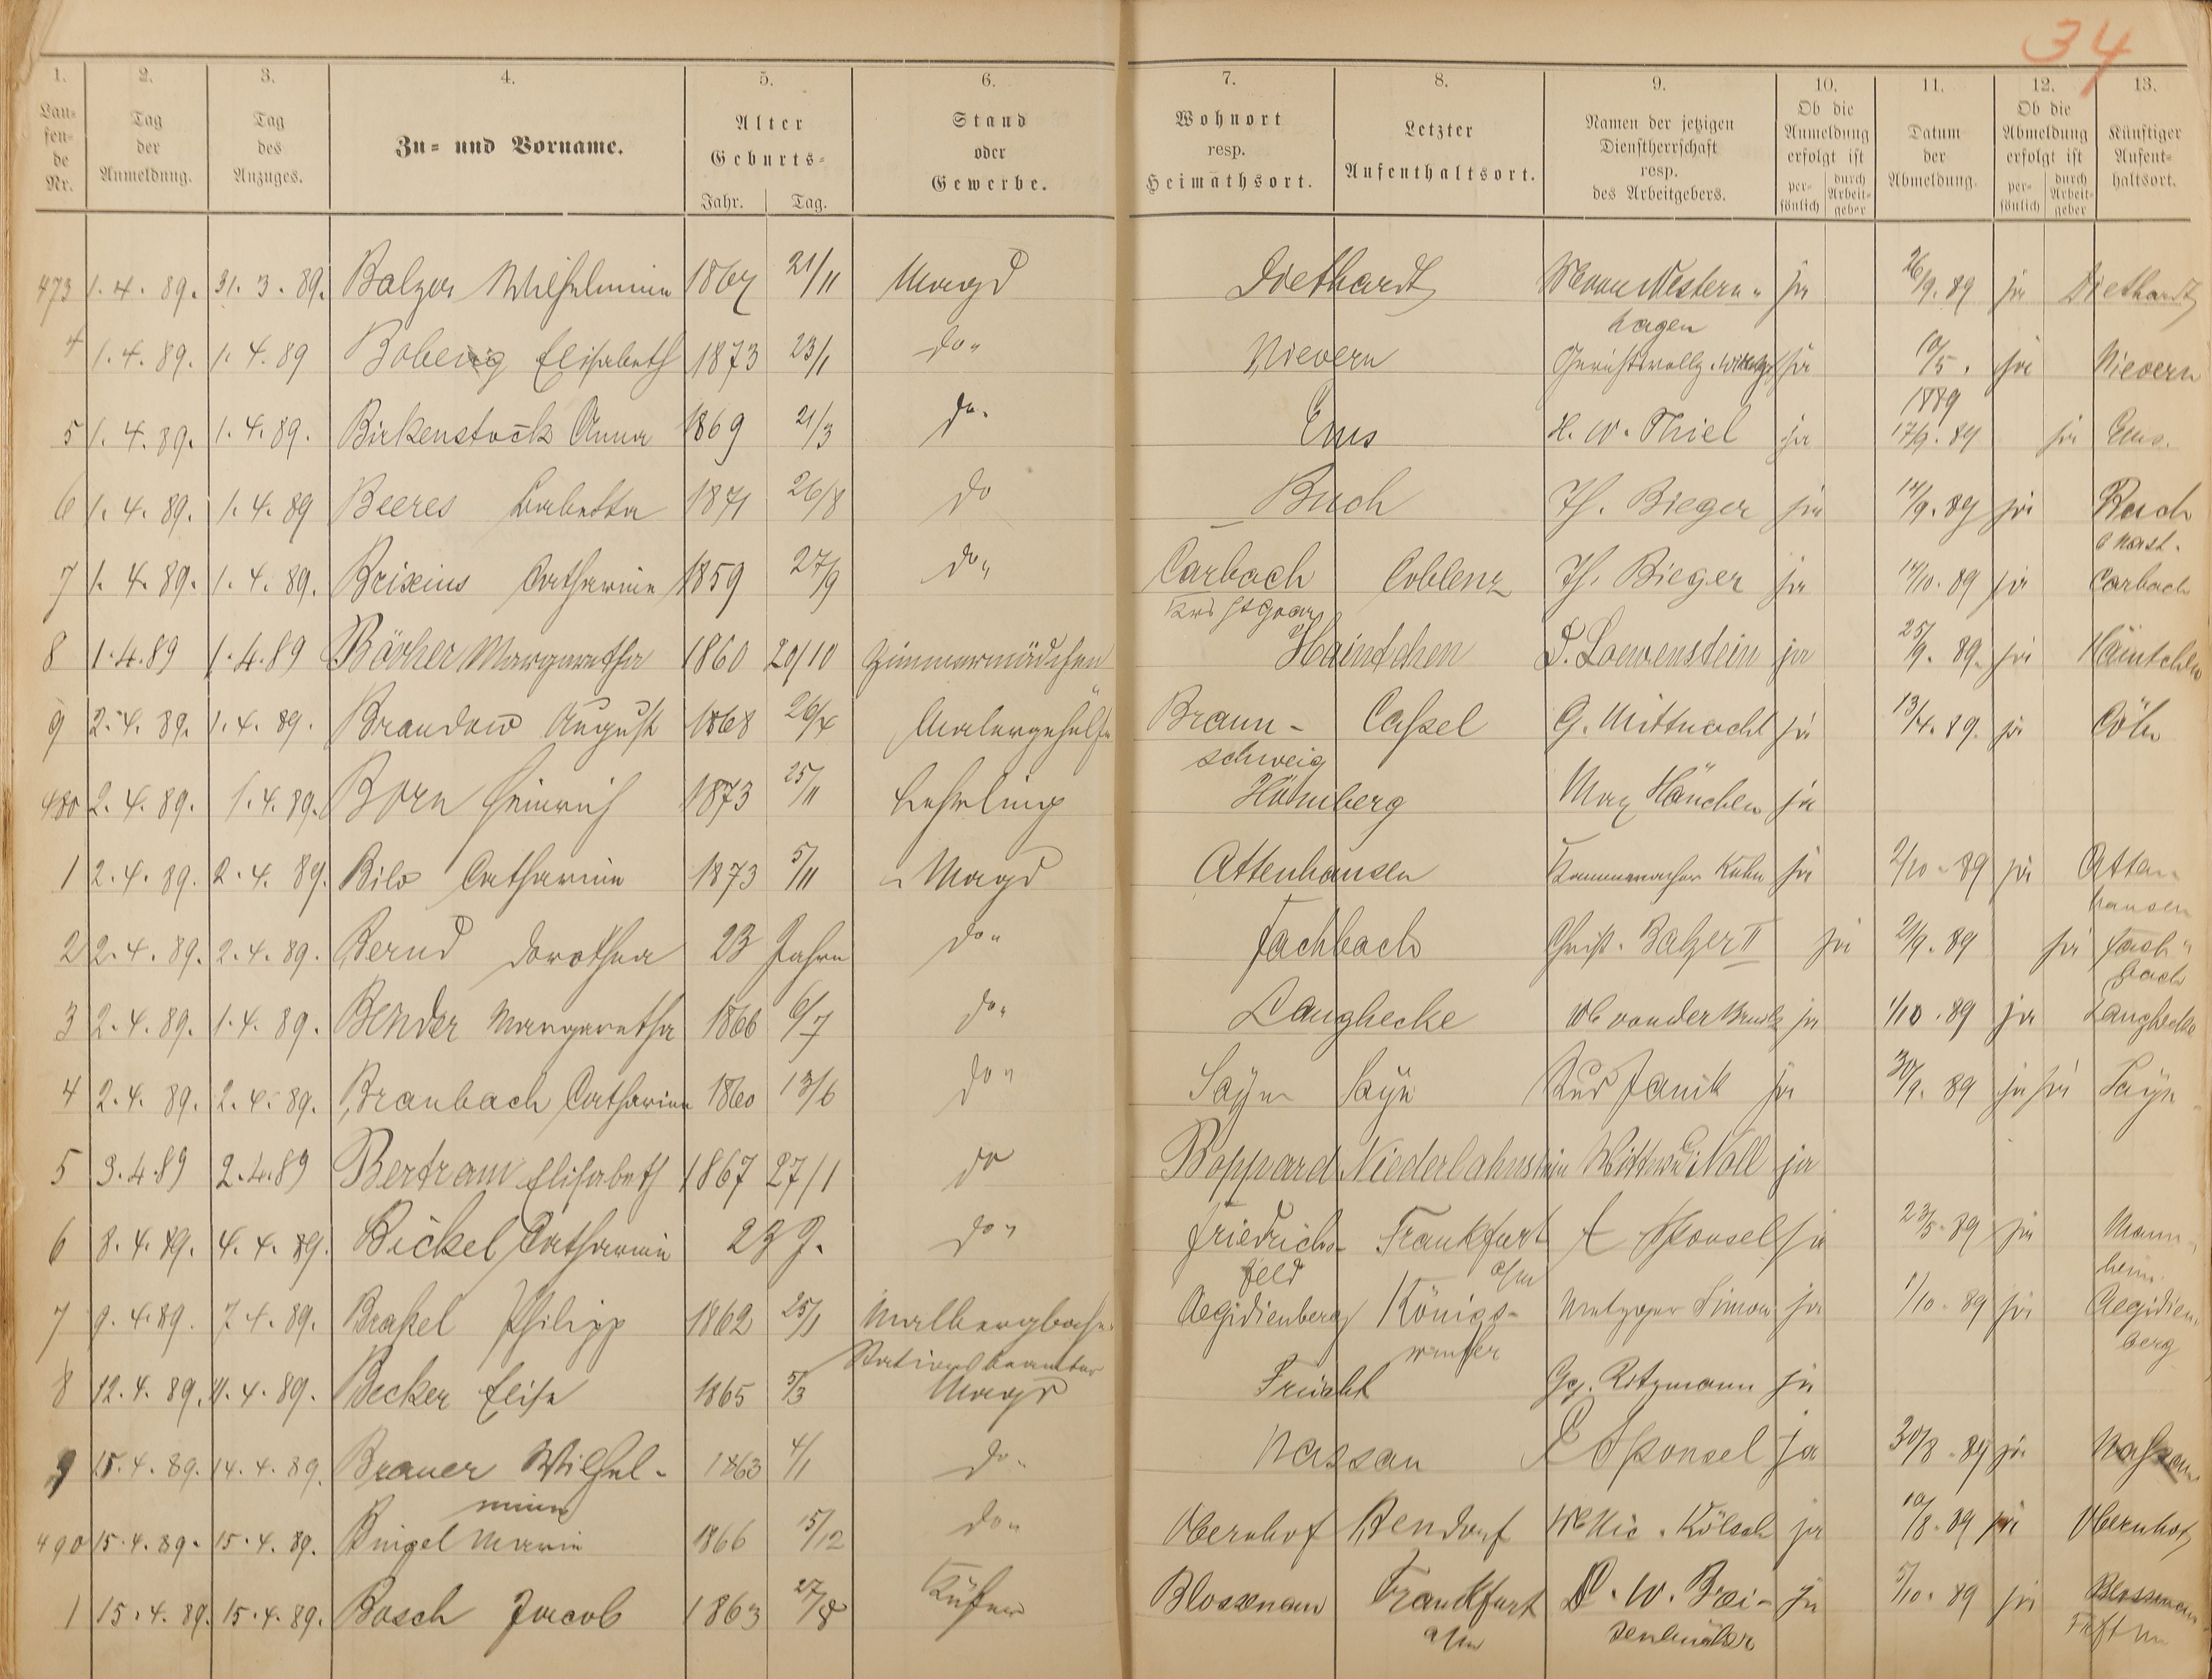 34
1. 2. 3. 4. 5. 6. 7. 8. 9. 10. 11. 12. 13.
Laufende Nr. Tag der Anmeldung. Tag des Anzuges. Zu- und Vorname. Alter Geburts- Jahr. Tag. Stand oder Gewerbe. Wohnort resp. Heimathsort. Letzter Aufenthaltsort. Namen der jetzigen Dienstherrschaft resp. des Arbeitgebers. Ob die Anmeldung erfolgt ist persönlich durch Arbeitgeber Datum der Abmeldung. Ob die Abmeldung erfolgt ist persönlich durch Arbeitgeber Künftiger Aufenthaltsort.
473 1. 4. 89. 31. 3. 89. Balzer Wilhelmine 1867 21/11 Magd Diethardt Western- ja 26/9. 89 ja Diethardt
hagen
4 1. 4. 89. 1. 4. 89 Boberig Elisabeth 1873 23/1 do" Nievern ja 10/5. ja Nievern
1889
5 1. 4. 89. 1. 4. 89. Birkenstock Anna 1869 21/3 do. Ems H. W. Thiel ja 17/9. 89 ja Ems.
6 1. 4. 89. 1. 4. 89 Beeres Babetta 1871 26/8 do Buch Th. Bieger ja 14/9. 89 ja Buch
7 1. 4. 89. 1. 4. 89. Brixius Catharina 1859 27/9 do" Carbach Coblenz Th. Bieger ja 14/10. 89 ja Carbach
Krs St Goar
8 1. 4. 89 1. 4. 89 Margaretha 1860 20/10 Zimmermädchen Haintchen S. Loewenstein ja 25/9. 89. ja Haintchen
9 2. 4. 89. 1. 4. 89. Brandow August 1868 26/4 Malergehülfe Braun- Caßel G. Mittnacht ja 13/4. 89. ja Cöln
schweig
480 2. 4. 89. 1. 4. 89. Born Heinrich 1873 25/11 Lehrling Hömberg Max Hänchen ja
1 2. 4. 89. 2. 4. 89. Bilo Catharina 1873 5/11 Magd Attenhausen Kammmacher Kuhn ja 2/10. 89 ja Atten-
hausen
2 2. 4. 89. 2. 4. 89. Bernd Dorothea 23 Jahre do" Fachbach Christ. Balzer II ja 2/9. 89 ja Fach-
bach
3 2. 4. 89. 1. 4. 89. Bender Margaretha 1866 6/7 do" Langhecke ja 1/10. 89 ja Langhecke
4 2. 4. 89. 2. 4. 89. Braubach Catharina 1860 13/6 do" Sayn Sayn Rud Janik ja 30/9. 89 ja ja Sayn
5 3. 4. 89 2. 4. 89 Bertram Elisabeth 1867 27/1 do Boppard Niederlahnstein Wittwe Noll ja
6 8. 4. 89. 4. 4. 89. Bickel Catharina 23 J. do" Friedrichs- Frankfurt Sponsel ja 23/5. 89 ja Mann-
feld a/m heim.
7 9. 4. 89. 7. 4. 89. Brakel Philipp 1862 25/1 Malbergbahn Aegidienberg Königs- Metzger Simon ja 1/10. 89 ja Aegidien-
Stationsbeamter winter berg
8 12. 4. 89. 11. 4. 89. Becker Elise 1865 5/3 Magd Frücht Gg. Ritzmann ja
9 15. 4. 89. 14. 4. 89. Brauer Wilhel- 1863 4/1 do" Nassau E Sponsel ja 30/8. 89 ja Naßau
mine
490 15. 4. 89. 15. 4. 89. Bingel Marie 1866 15/12 do" Obernhof Bendorf Nic. Kölsch ja 10/8. 89 ja Obernhof
1 15. 4. 89. 15. 4. 89. Bosch Jacob 1863 27/8 Küfer Blossenau Frankfurt D. W. ja 5/10. 89 ja Blossenau
a/m